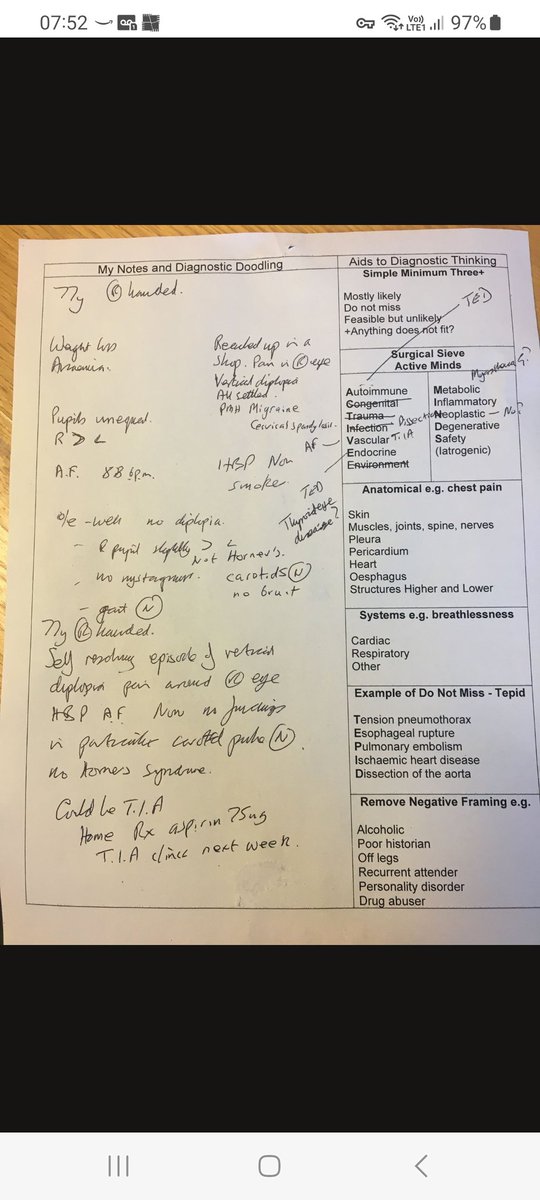 07:52
Vo))
LTE1
97%
My Notes and Diagnostic Doodling
77y R handed.
Weight loss
Anaemia.
Pupils unequal.
R > L
A.F. 88 bpm.
Reached up in a
shop. Pain in R eye
Vertical diplopia
All settled.
PMH Migraine
Cervical spondylosis.
HBP Non
smoker.
o/e - well no diplopia.
- R pupil slightly > L
Not Horner's.
- no nystagmus. carotids N
no bruit
- gait N
77y R handed.
Self resolving episode of vertical
diplopia pain around R eye
HBP A.F. Now no findings
in particular carotid pulse N.
no Horners Syndrome.
Could be T.I.A
Home Rx aspirin 75mg
T.I.A clinic next week.
Aids to Diagnostic Thinking
Simple Minimum Three+
Mostly likely
Do not miss
Feasible but unlikely
+Anything does not fit?
TED
Surgical Sieve
Active Minds
Autoimmune
Congenital
Trauma
Infection Dissection
Vascular T.I.A
Endocrine
Environment
AF
TED
Thyroid eye
disease?
Metabolic
Inflammatory
Neoplastic - No?
Degenerative
Safety
(Iatrogenic)
Anatomical e.g. chest pain
Skin
Muscles, joints, spine, nerves
Pleura
Pericardium
Heart
Oesphagus
Structures Higher and Lower
Systems e.g. breathlessness
Cardiac
Respiratory
Other
Example of Do Not Miss - Tepid
Tension pneumothorax
Esophageal rupture
Pulmonary embolism
Ischaemic heart disease
Dissection of the aorta
Remove Negative Framing e.g.
Alcoholic
Poor historian
Off legs
Recurrent attender
Personality disorder
Drug abuser